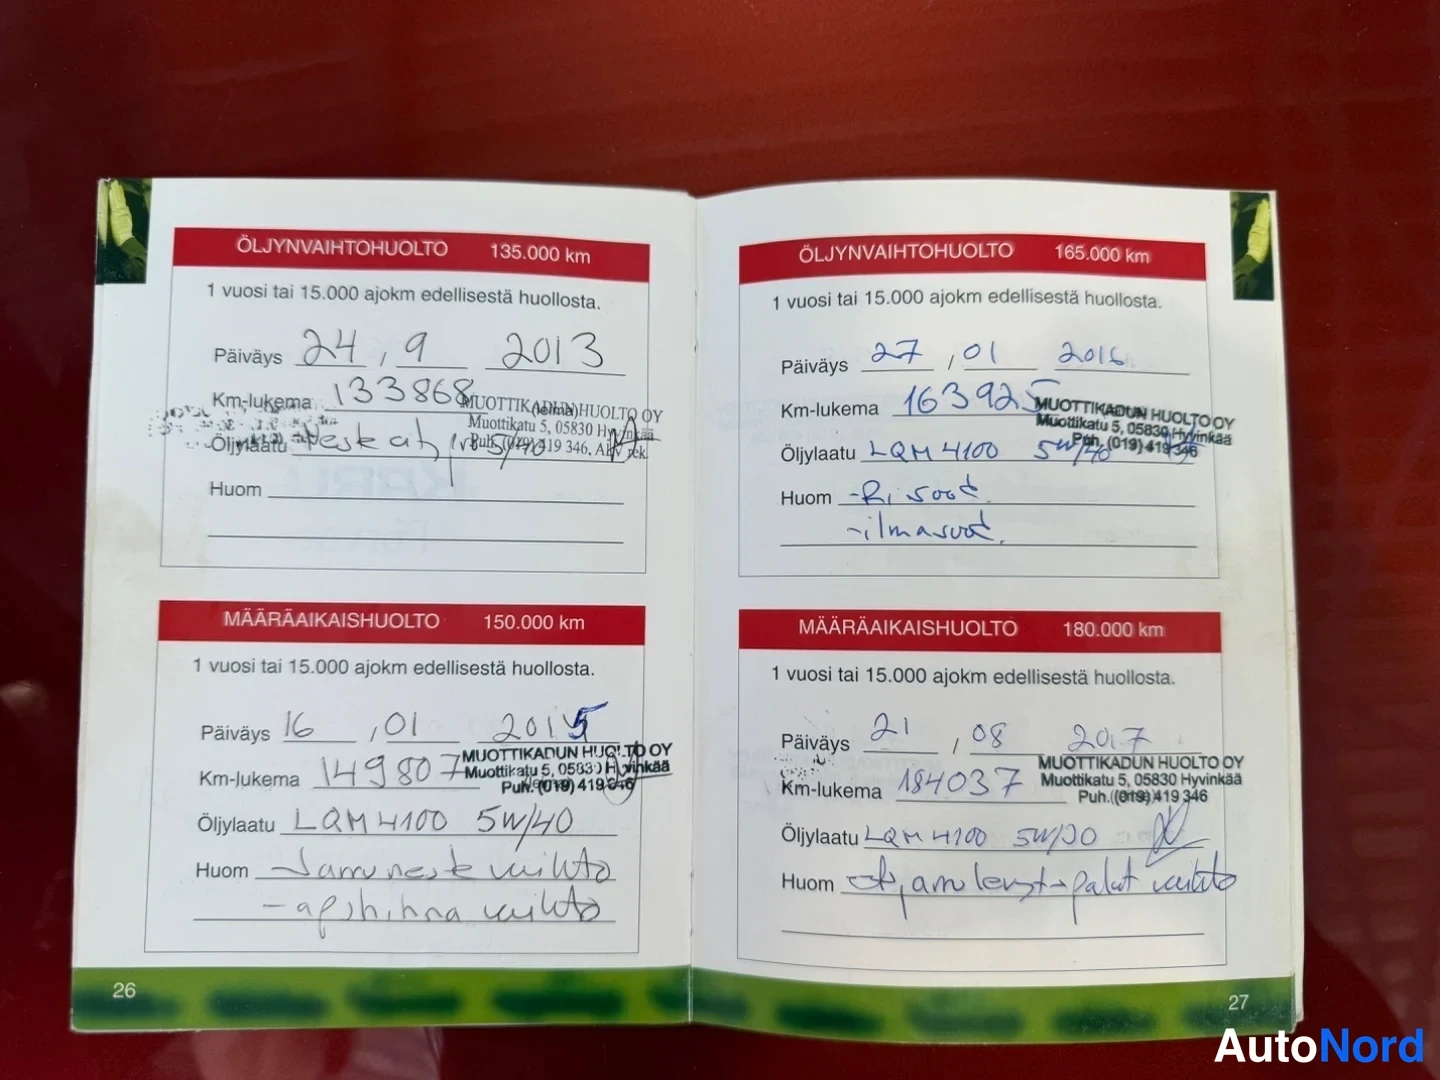 ÖLJYNVAIHTOHUOLTO 135.000 km
1 vuosi tai 15.000 ajokm edellisestä huollosta.
Päiväys 24 , 9 2013
Km-lukema 133868
MUOTTIKADUN HUOLTO OY
Muottikatu 5, 05830 Hyvinkää
Puh. (019) 419 346,
Öljylaatu 5/40
Huom
MÄÄRÄAIKAISHUOLTO 150.000 km
1 vuosi tai 15.000 ajokm edellisestä huollosta.
Päiväys 16 , 01 2015
Km-lukema 149807
MUOTTIKADUN HUOLTO OY
Muottikatu 5, 05830 Hyvinkää
Puh. (019) 419 346
Öljylaatu LQM4100 5W/40
Huom - Jarruneste vaihto
- apuhihna vaihto
26
ÖLJYNVAIHTOHUOLTO 165.000 km
1 vuosi tai 15.000 ajokm edellisestä huollosta.
Päiväys 27 , 01 2016
Km-lukema 163925
MUOTTIKADUN HUOLTO OY
Muottikatu 5, 05830 Hyvinkää
Puh. (019) 419 346
Öljylaatu LQM4100 5W/40
Huom -Ri suod.
-ilmasuod.
MÄÄRÄAIKAISHUOLTO 180.000 km
1 vuosi tai 15.000 ajokm edellisestä huollosta.
Päiväys 21 , 08 2017
Km-lukema 184037
MUOTTIKADUN HUOLTO OY
Muottikatu 5, 05830 Hyvinkää
Puh. (019) 419 346
Öljylaatu LQM4100
Huom palat vaihto
27
AutoNord